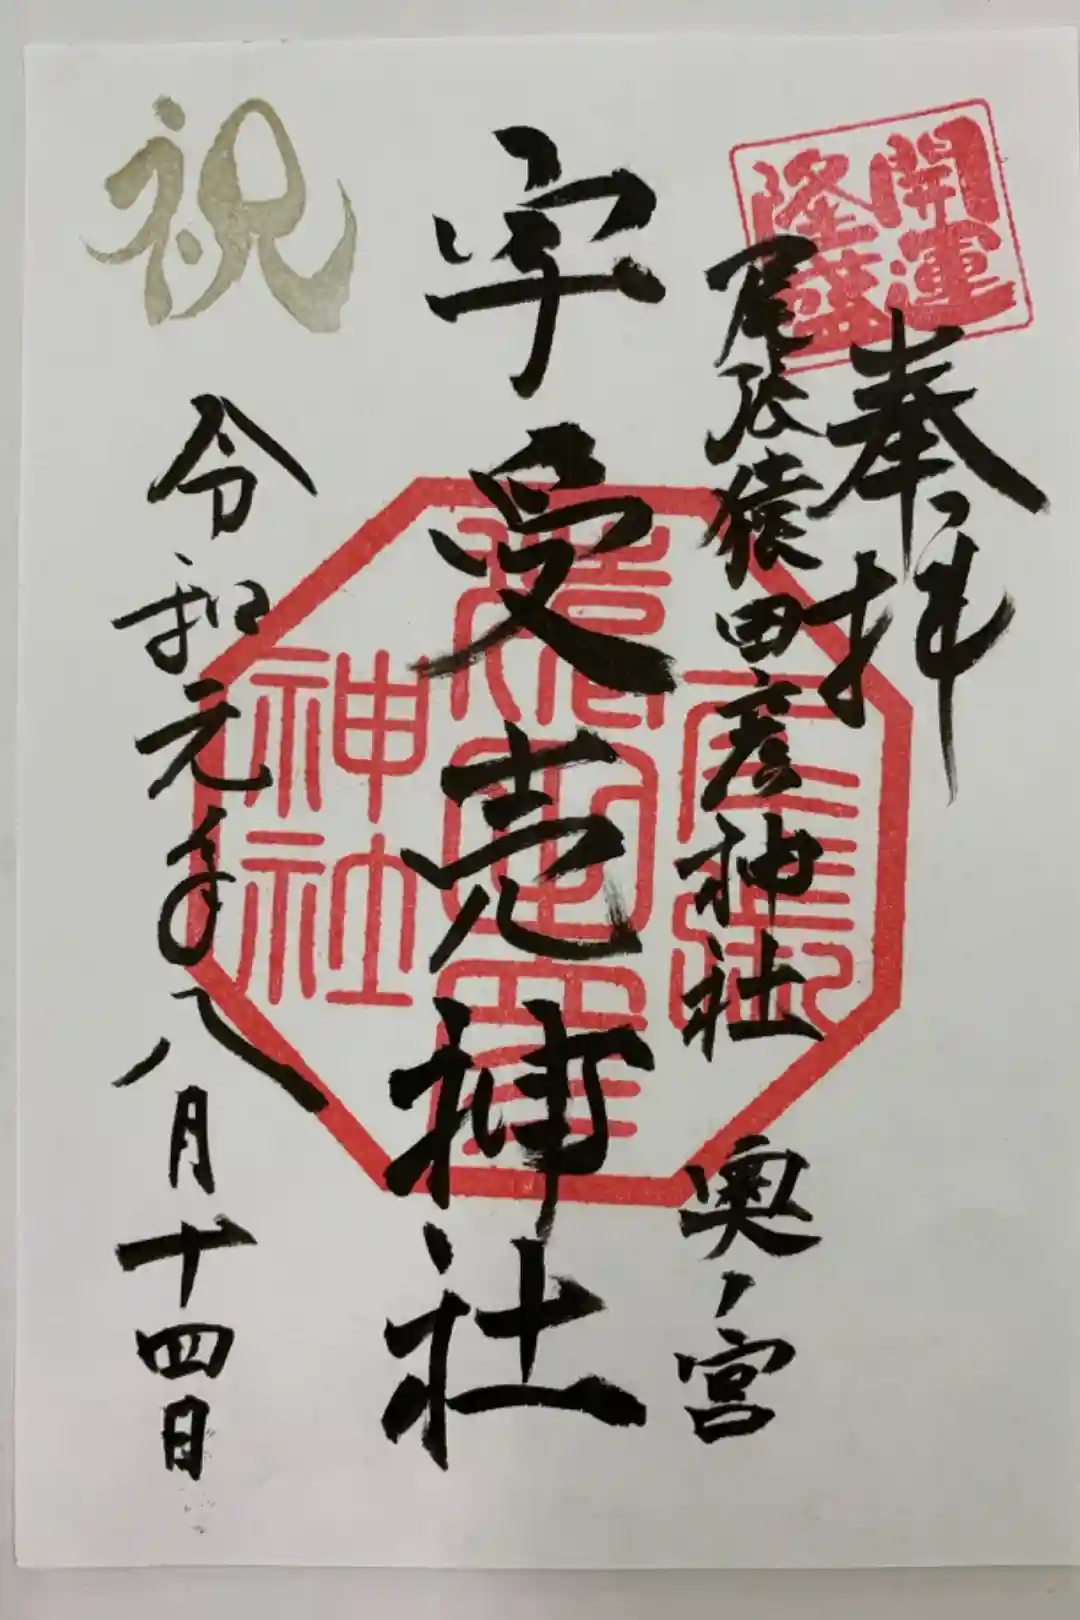 開運
隆盛
奉拝
尾張猿田彦神社 奥ノ宮
宇受売神社
神社
祝
令和元年八月十四日